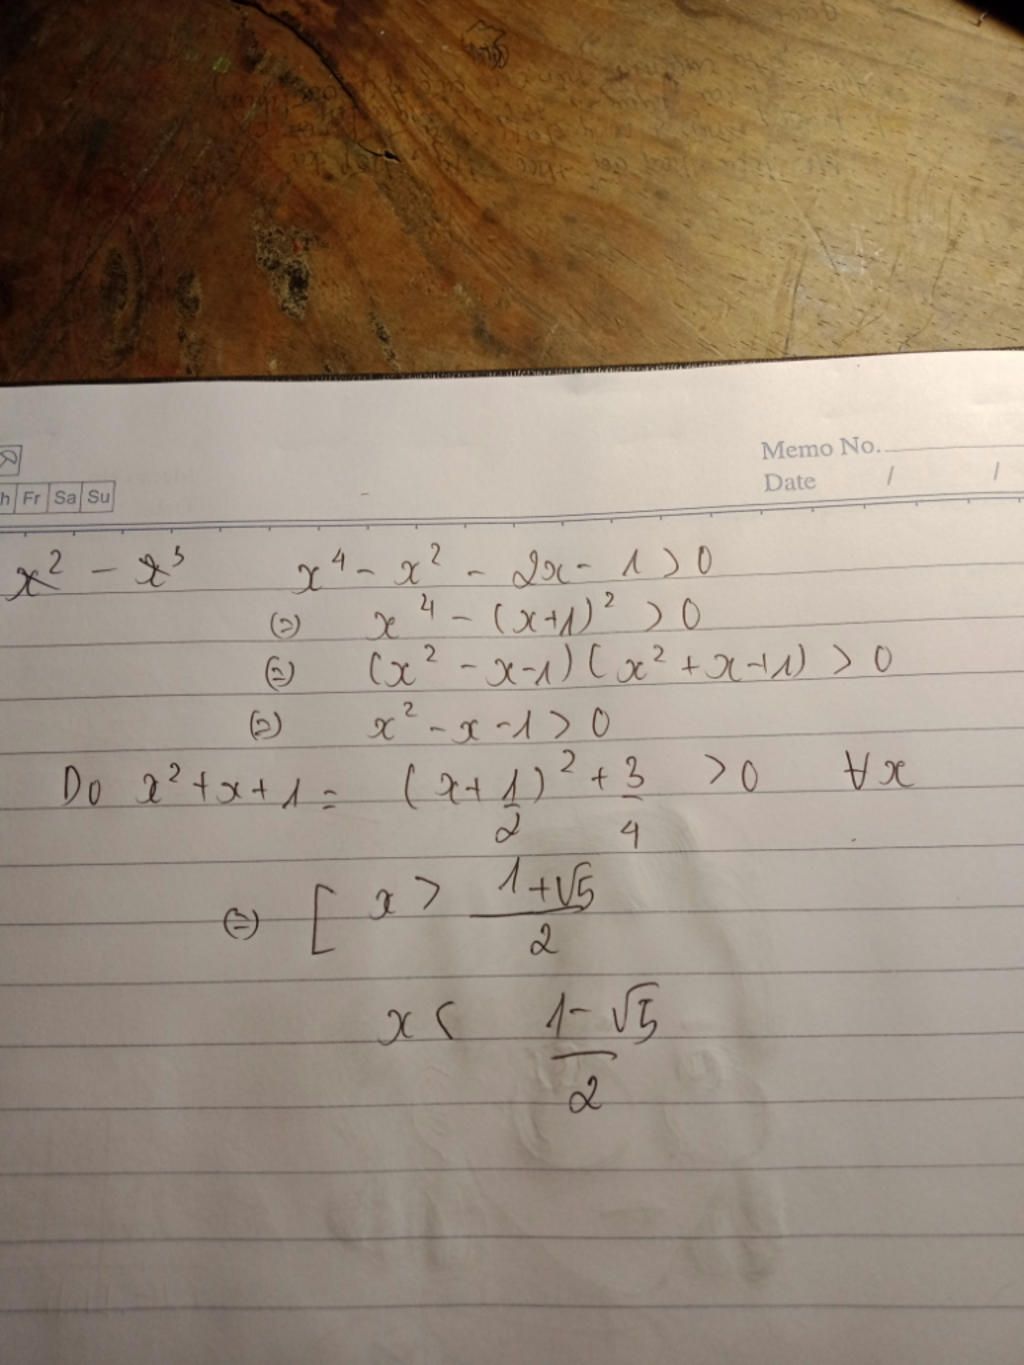 Memo No.
h Fr Sa Su
Date / /
x² - x³ x⁴ - x² - 2x - 1 > 0
⇔ x⁴ - (x+1)² > 0
⇔ (x² - x - 1)(x² + x + 1) > 0
⇔ x² - x - 1 > 0
Do x² + x + 1 = (x + 1/2)² + 3/4 > 0 ∀x
⇔ [ x > (1+√5)/2
x < (1-√5)/2